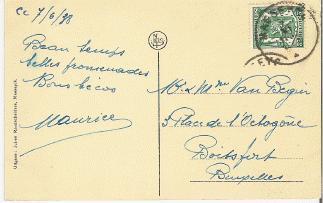 Ce 7/6/38
Beau temps
belles promenades
Bons bécos
Maurice
Mr & Mme Van Begin
5 Place de l'Octogone
Boitsfort
Bruxelles